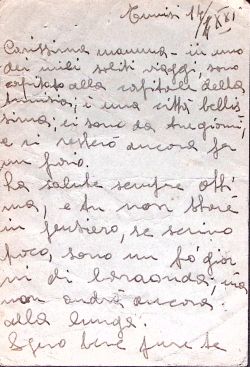 Tunisi 14/II XXI
Carissima mamma - in uno
dei miei soliti viaggi, sono
capitato alla capitale della
Tunisia; è una città bellis
sima, ci sono da tre giorni,
e ci resterò ancora per
un poco.
La salute sempre otti
ma, e tu non stare
in pensiero, se scrivo
poco, sono un po' gior
ni di baraonda, ma
non andrà ancora
alla lunga.
Spero bene pure te